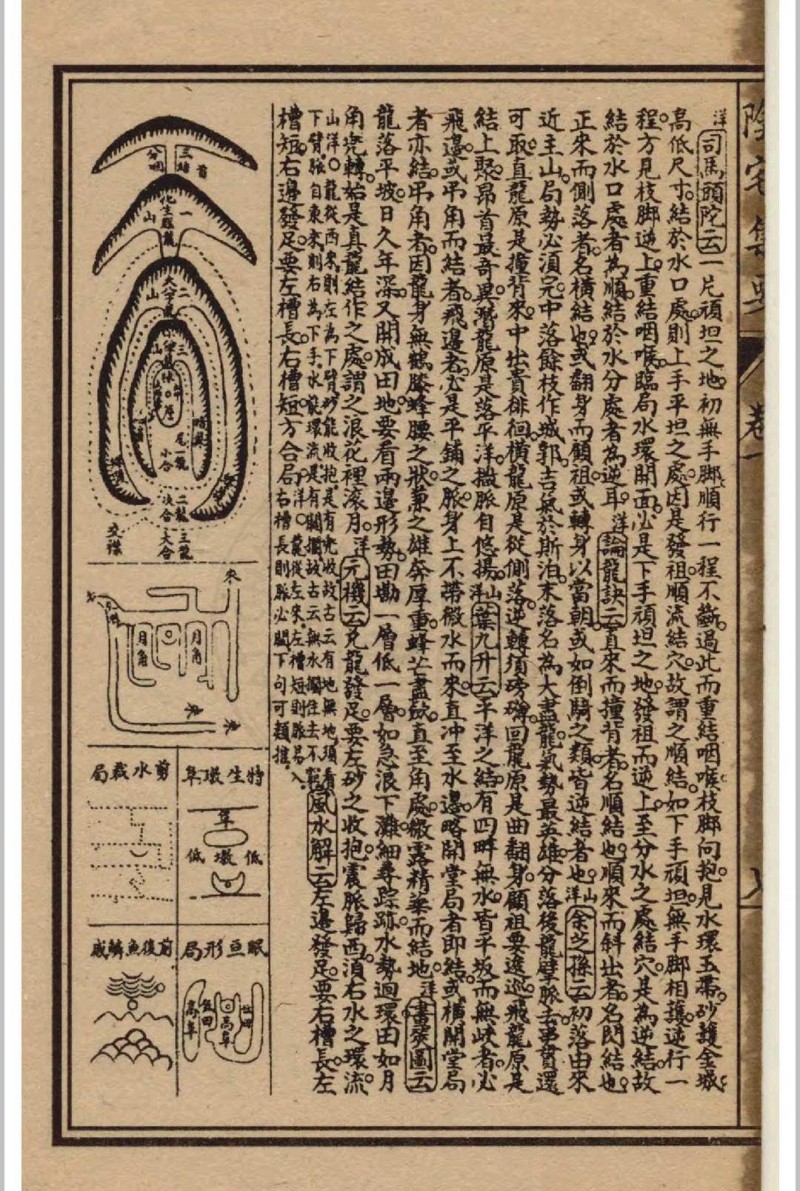 陰宅集要
卷一
洋司馬頭陀云一片頑坦之地初無手脚順行一程不斷過此而重結咽喉枝脚向抱見水環玉帶砂護金城
高低尺寸結於水口處則上手平坦之處因是發祖順流結穴故謂之順結如下手頑坦無手脚相護逆行一
程方見枝脚逆上重結咽喉臨局水環開面必是下手頑坦之地發祖而逆上至分水之處結穴是為逆結故
結於水口處者為順結於水分處者為逆耳洋論龍訣云直來而撞背者名順結也順來而斜出者名閃結也
正來而側落者名橫結也或翻身而顧祖或轉身以當朝或如倒騎之類皆逆結者也山洋余芝孫云初落由來
近主山局勢必須完中落餘枝作城郭吉氣於斯泊末落名為大盡龍氣勢最英雄分落後龍擘脈去串貫還
可取直龍原是撞背來中出貴徘徊橫龍原是從側落逆轉須磅礡回龍原是曲翻身顧祖要逡巡飛龍原是
結上聚昂首最奇異潛龍原是落平洋撒脈自悠揚山洋葉九升云平洋之結有四畔無水皆平坂而無歧者必
飛邊或吊角而結者飛邊者必是平鋪之脈身上不帶微水而來直冲至水邊略開堂局者即結或橫開堂局
者亦結吊角者因龍身無鶴膝蜂腰之狀兼之雄奔厚重鋒芒盡斂直至角處微露精華而結地洋畫莢圖云
龍落平坡日久年深又開成田地要看兩邊形勢田勘一層低一層如急浪下灘細尋踪跡水勢迴環田如月
角兜轉始是真龍結作之處謂之浪花裡滾月洋元機云凡龍發足要左砂之收抱震脈歸西須右水之環流
山洋龍從西來則左為下臂砂能收抱是有兜收故古云有地無地須看
下臂脈自東來則右為下手水能環流是有關攔故古云無水攔住去不
風水解云左邊發足要右槽長左
槽短右邊發足要左槽長右槽短方合局
三㘭
首
分咽
一
山
化生腦龍
二
山
三
山
尾一龍
小合
二龍
次合
三龍
大合
交襟
來
月角
月角
水
水
特生墩阜
阜
低 墩 低
剪水裁局
眠亘形局
高阜
高阜
前後魚鱗砂